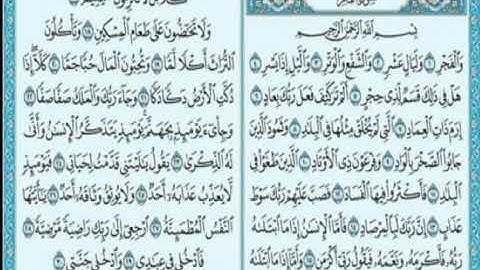 بِسْمِ ٱللَّهِ ٱلرَّحْمَٰنِ ٱلرَّحِيمِ
وَٱلْفَجْرِ ١ وَلَيَالٍ عَشْرٍ ٢ وَٱلشَّفْعِ وَٱلْوَتْرِ ٣ وَٱلَّيْلِ إِذَا يَسْرِ ٤
هَلْ فِى ذَٰلِكَ قَسَمٌ لِّذِى حِجْرٍ ٥ أَلَمْ تَرَ كَيْفَ فَعَلَ رَبُّكَ بِعَادٍ ٦
إِرَمَ ذَاتِ ٱلْعِمَادِ ٧ ٱلَّتِى لَمْ يُخْلَقْ مِثْلُهَا فِى ٱلْبِلَٰدِ ٨ وَثَمُودَ ٱلَّذِينَ
جَابُوا۟ ٱلصَّخْرَ بِٱلْوَادِ ٩ وَفِرْعَوْنَ ذِى ٱلْأَوْتَادِ ١٠ ٱلَّذِينَ طَغَوْا۟ فِى
ٱلْبِلَٰدِ ١١ فَأَكْثَرُوا۟ فِيهَا ٱلْفَسَادَ ١٢ فَصَبَّ عَلَيْهِمْ رَبُّكَ سَوْطَ
عَذَابٍ ١٣ إِنَّ رَبَّكَ لَبِٱلْمِرْصَادِ ١٤ فَأَمَّا ٱلْإِنسَٰنُ إِذَا مَا ٱبْتَلَىٰهُ
رَبُّهُۥ فَأَكْرَمَهُۥ وَنَعَّمَهُۥ فَيَقُولُ رَبِّىٓ أَكْرَمَنِ ١٥ وَأَمَّآ إِذَا مَا ٱبْتَلَىٰهُ
وَلَا تَحَٰٓضُّونَ عَلَىٰ طَعَامِ ٱلْمِسْكِينِ ١٨ وَتَأْكُلُونَ
ٱلتُّرَاثَ أَكْلًا لَّمًّا ١٩ وَتُحِبُّونَ ٱلْمَالَ حُبًّا جَمًّا ٢٠ كَلَّآ إِذَا
دُكَّتِ ٱلْأَرْضُ دَكًّا دَكًّا ٢١ وَجَآءَ رَبُّكَ وَٱلْمَلَكُ صَفًّا صَفًّا ٢٢
وَجِا۟ىٓءَ يَوْمَئِذٍۭ بِجَهَنَّمَ يَوْمَئِذٍ يَتَذَكَّرُ ٱلْإِنسَٰنُ وَأَنَّىٰ
لَهُ ٱلذِّكْرَىٰ ٢٣ يَقُولُ يَٰلَيْتَنِى قَدَّمْتُ لِحَيَاتِى ٢٤ فَيَوْمَئِذٍ
لَّا يُعَذِّبُ عَذَابَهُۥٓ أَحَدٌ ٢٥ وَلَا يُوثِقُ وَثَاقَهُۥٓ أَحَدٌ ٢٦ يَٰٓأَيَّتُهَا
ٱلنَّفْسُ ٱلْمُطْمَئِنَّةُ ٢٧ ٱرْجِعِىٓ إِلَىٰ رَبِّكِ رَاضِيَةً مَّرْضِيَّةً ٢٨
فَٱدْخُلِى فِى عِبَٰدِى ٢٩ وَٱدْخُلِى جَنَّتِى ٣٠